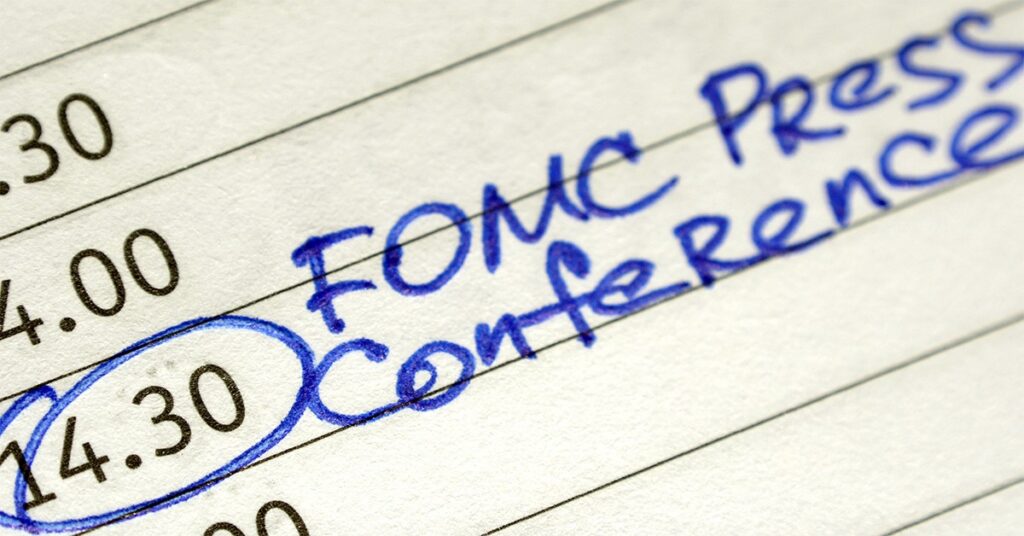 .30
4.00
FOMC Press
14.30 Conference
.00